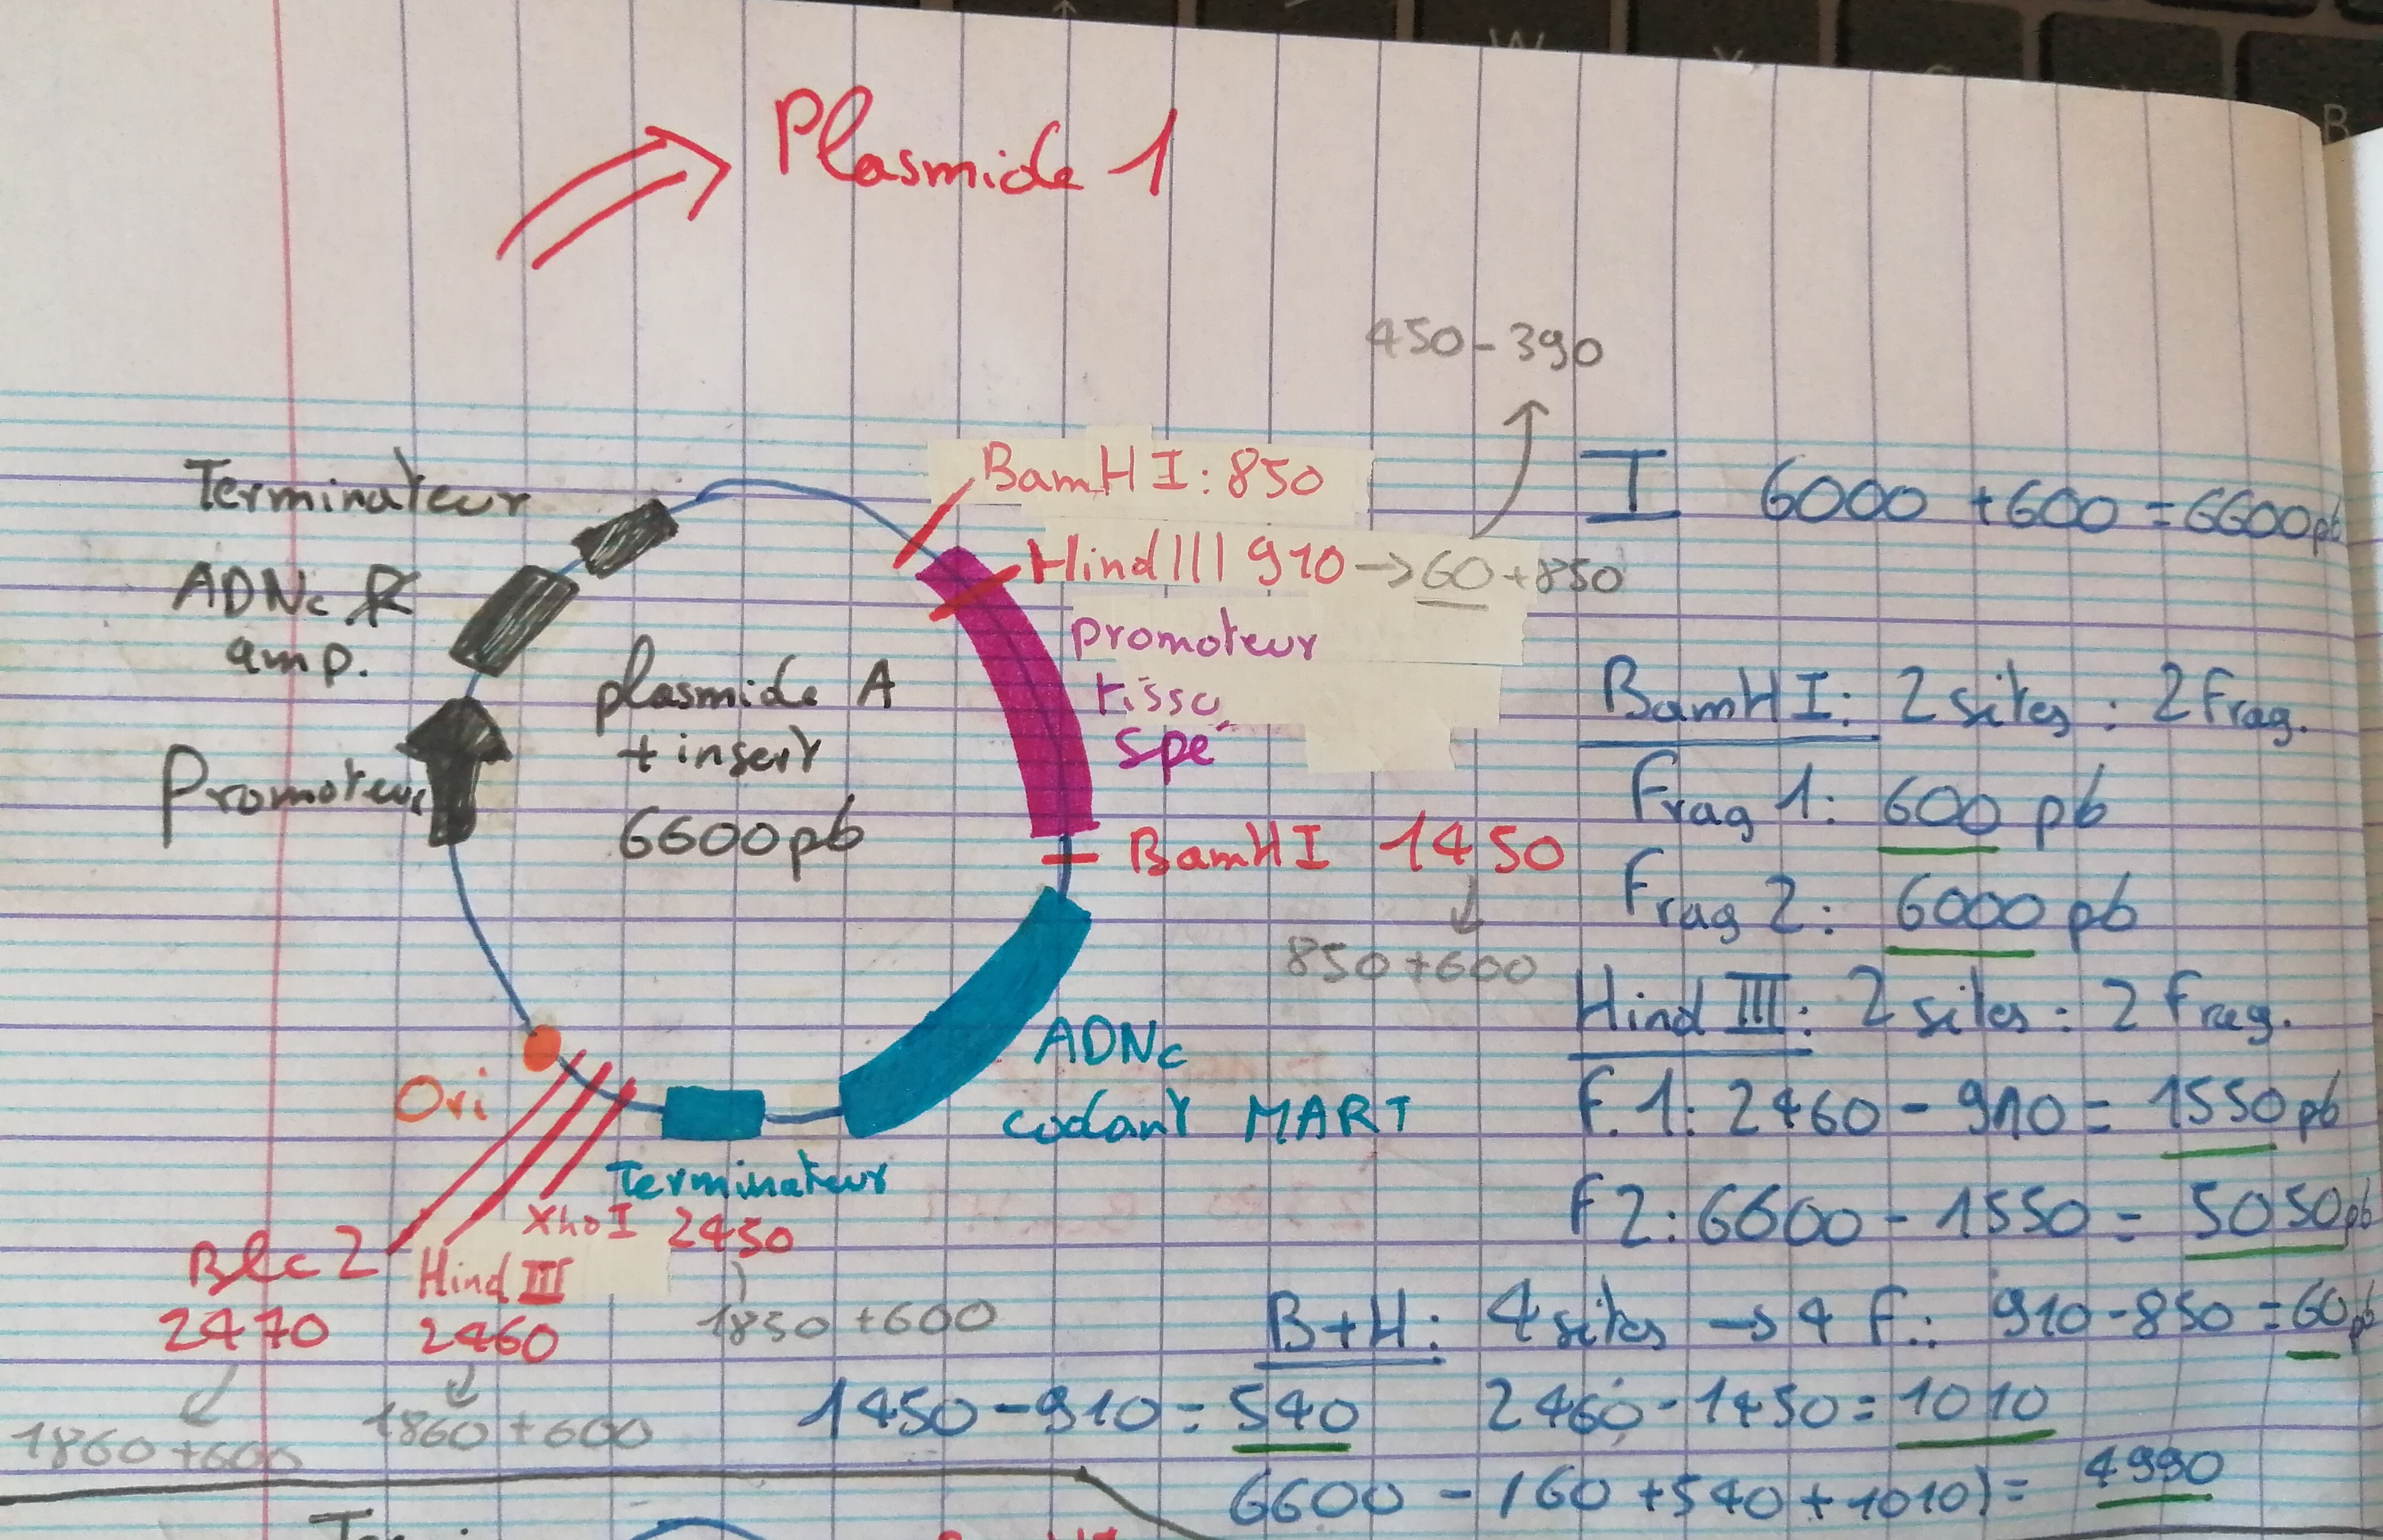 Plasmide 1
450-390
BamHI: 850
Hind III 910 → 60 + 850
promoteur
tisso
spé
Terminateur
ADNc R
amp.
Promoteur
plasmide A
+ insert
6600pb
BamHI 1450
850+600
ADNc
codant MART
Terminateur
Ori
XhoI 2450
1850 +600
Hind III
2460
1860 +600
Blc2
2470
1860 +600
I 6000 +600 = 6600pb
BamHI: 2 sites : 2 Frag.
Frag 1: 600 pb
Frag 2: 6000 pb
Hind III: 2 sites : 2 Frag.
F.1: 2460 - 910 = 1550 pb
F2: 6600 - 1550 = 5050pb
B+H: 4 sites → 4 F.: 910-850 = 60pb
1450-910 = 540 2460-1450 = 1010
6600 - (60 +540 +1010) = 4990